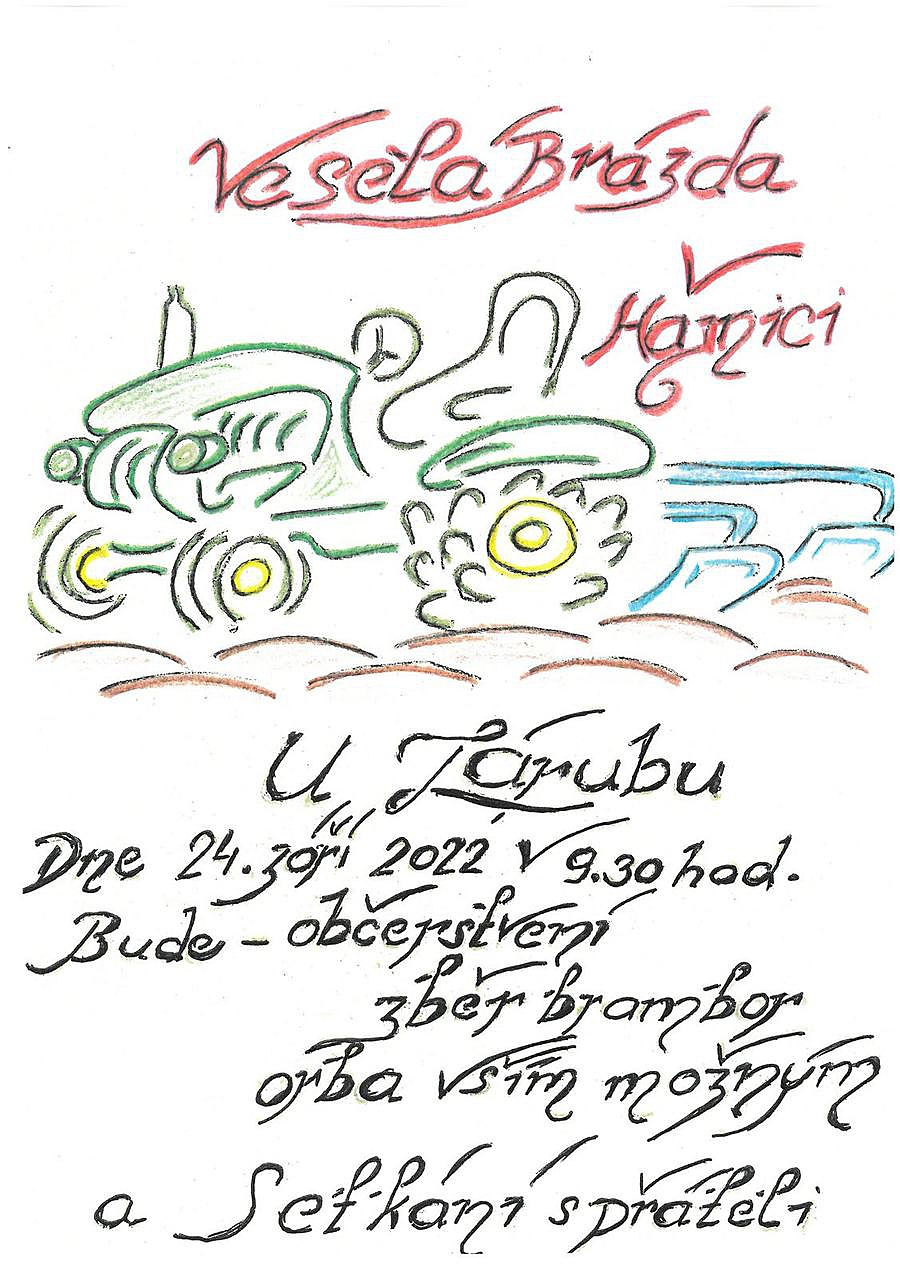 Veselá Brázda
V Hajnici
U Zárubu
Dne 24. září 2022 v 9.30 hod.
Bude - občerstvení
zběr brambor
orba vším možným
a Setkání s přáteli